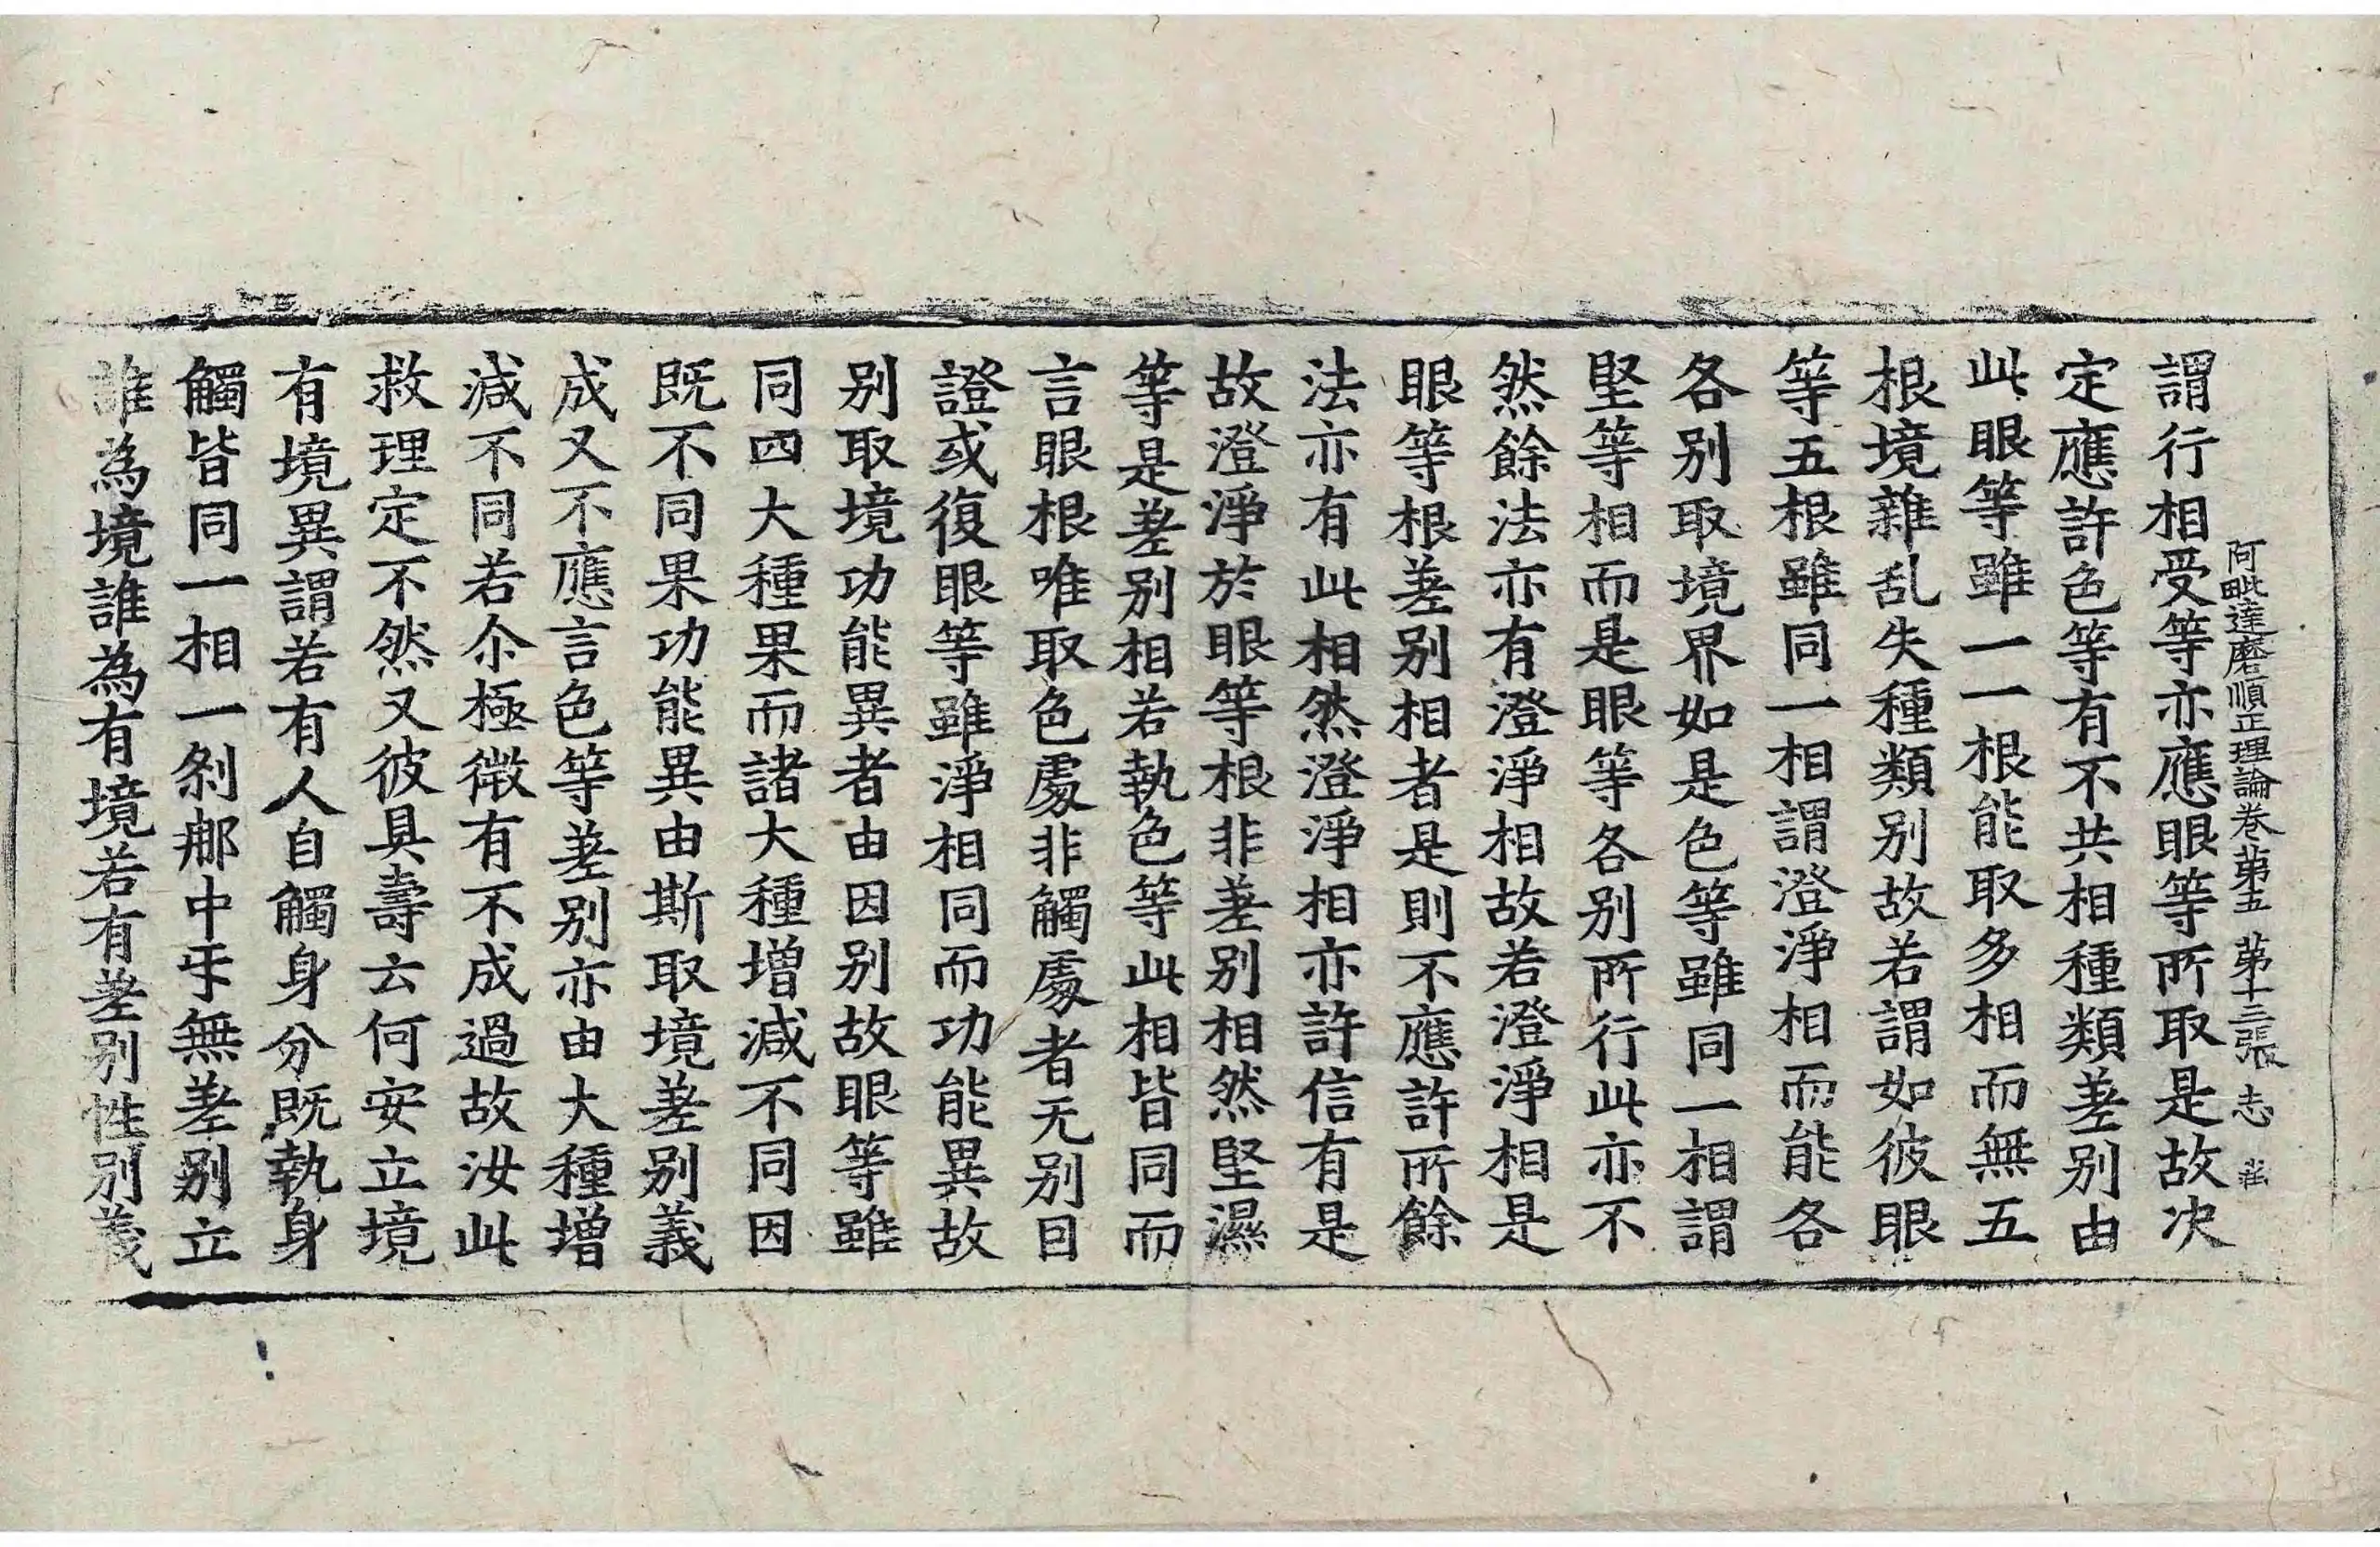 阿毗達磨順正理論卷第五　第十三張　志
謂行相受等亦應眼等所取是故决
定應許色等有不共相種類差别由
此眼等雖一一根能取多相而無五
根境雜乱失種類别故若謂如彼眼
等五根雖同一相謂澄淨相而能各
各别取境界如是色等雖同一相謂
堅等相而是眼等各别所行此亦不
然餘法亦有澄淨相故若澄淨相是
眼等根差别相者是則不應許所餘
法亦有此相然澄淨相亦許信有是
故澄淨於眼等根非差别相然堅濕
等是差别相若執色等此相皆同而
言眼根唯取色處非觸處者无别因
證或復眼等雖淨相同而功能異故
别取境功能異者由因别故眼等雖
同四大種果而諸大種增減不同因
既不同果功能異由斯取境差别義
成又不應言色等差别亦由大種增
減不同若尒極微有不成過故汝此
救理定不然又彼具壽云何安立境
有境異謂若有人自觸身分既執身
觸皆同一相一刹那中乎無差别立
誰為境誰為有境若有差别性别義